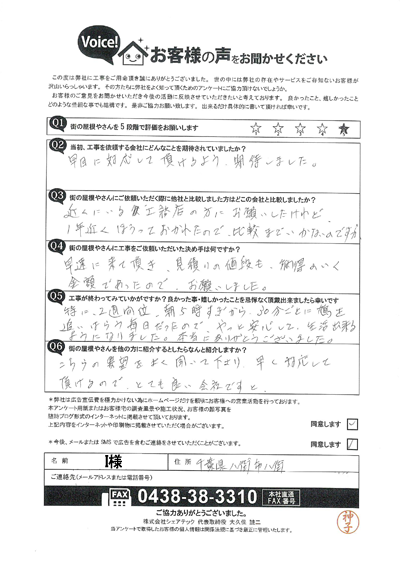 Voice!
お客様の声をお聞かせください
この度は弊社に工事をご用命頂き誠にありがとうございました。世の中には弊社の存在やサービスをご存知ないお客様が
沢山いらっしゃいます。その方たちに弊社をよく知って頂くためのアンケートにご協力頂けないでしょうか。
お客様のご意見をお聞かせいただき今後の活動に反映させていただきたいと考えております。良かったこと、嬉しかったこと
どのような些細な事でも結構です。是非ご協力お願い致します。出来るだけ具体的に書いて頂ければ幸いです。
Q1 街の屋根やさんを5段階で評価をお願いします
☆ ☆ ☆ ☆ ★
Q2 当初、工事を依頼する会社にどんなことを期待されていましたか?
早目に対応して頂けるよう、期待しました。
Q3 街の屋根やさんにご依頼いただく際に他社と比較しました方はどこの会社と比較しましたか?
近くにいる 工務店の方にお願いしたけれど、
1年近くほうっておかれたので、比較までいかないのですが
Q4 街の屋根やさんに工事をご依頼いただいた決め手は何ですか?
早速に来て頂き、見積りの値段も、納得のいく
金額であったので、お願いしました。
Q5 工事が終わってみていかがですか?良かった事・嬉しかったことを忌憚なく頂戴出来ましたら幸いです
特に、2週間位、朝5時すぎから、30分ごとに鴨を
追いはらう毎日だったので、やっと安心して、生活が出来る
ようになりました。本当にありがとうございました。
Q6 街の屋根やさんを他の方に紹介するとしたらなんと紹介しますか?
こちらの要望を良く聞いて下さり、早く対応して
頂けるので、とても良い会社ですと、
*弊社は広告宣伝費を極力かけない為にホームページだけを頼りにお客様への営業活動を行っております。
本アンケート用紙またはお客様宅の調査風景や施工状況、お客様の顔写真を
随時ブログ形式のインターネットに掲載させて頂いております。
上記内容をインターネットや印刷物に掲載させていただく場合がございます。 同意します ✓
*今後、メールまたは SMS で広告を含むご連絡をさせていただくことがございます。 同意します ✓
名前 I様 住所 千葉県八街市八街
ご連絡先(メールアドレスまたは電話番号)
FAX 0438-38-3310 本社直通 FAX番号
ご協力ありがとうございました。
株式会社シェアテック 代表取締役 大久保 謙二
当アンケートで取得したお客様の個人情報は関係法規に基づき厳正に管理いたします。
神子